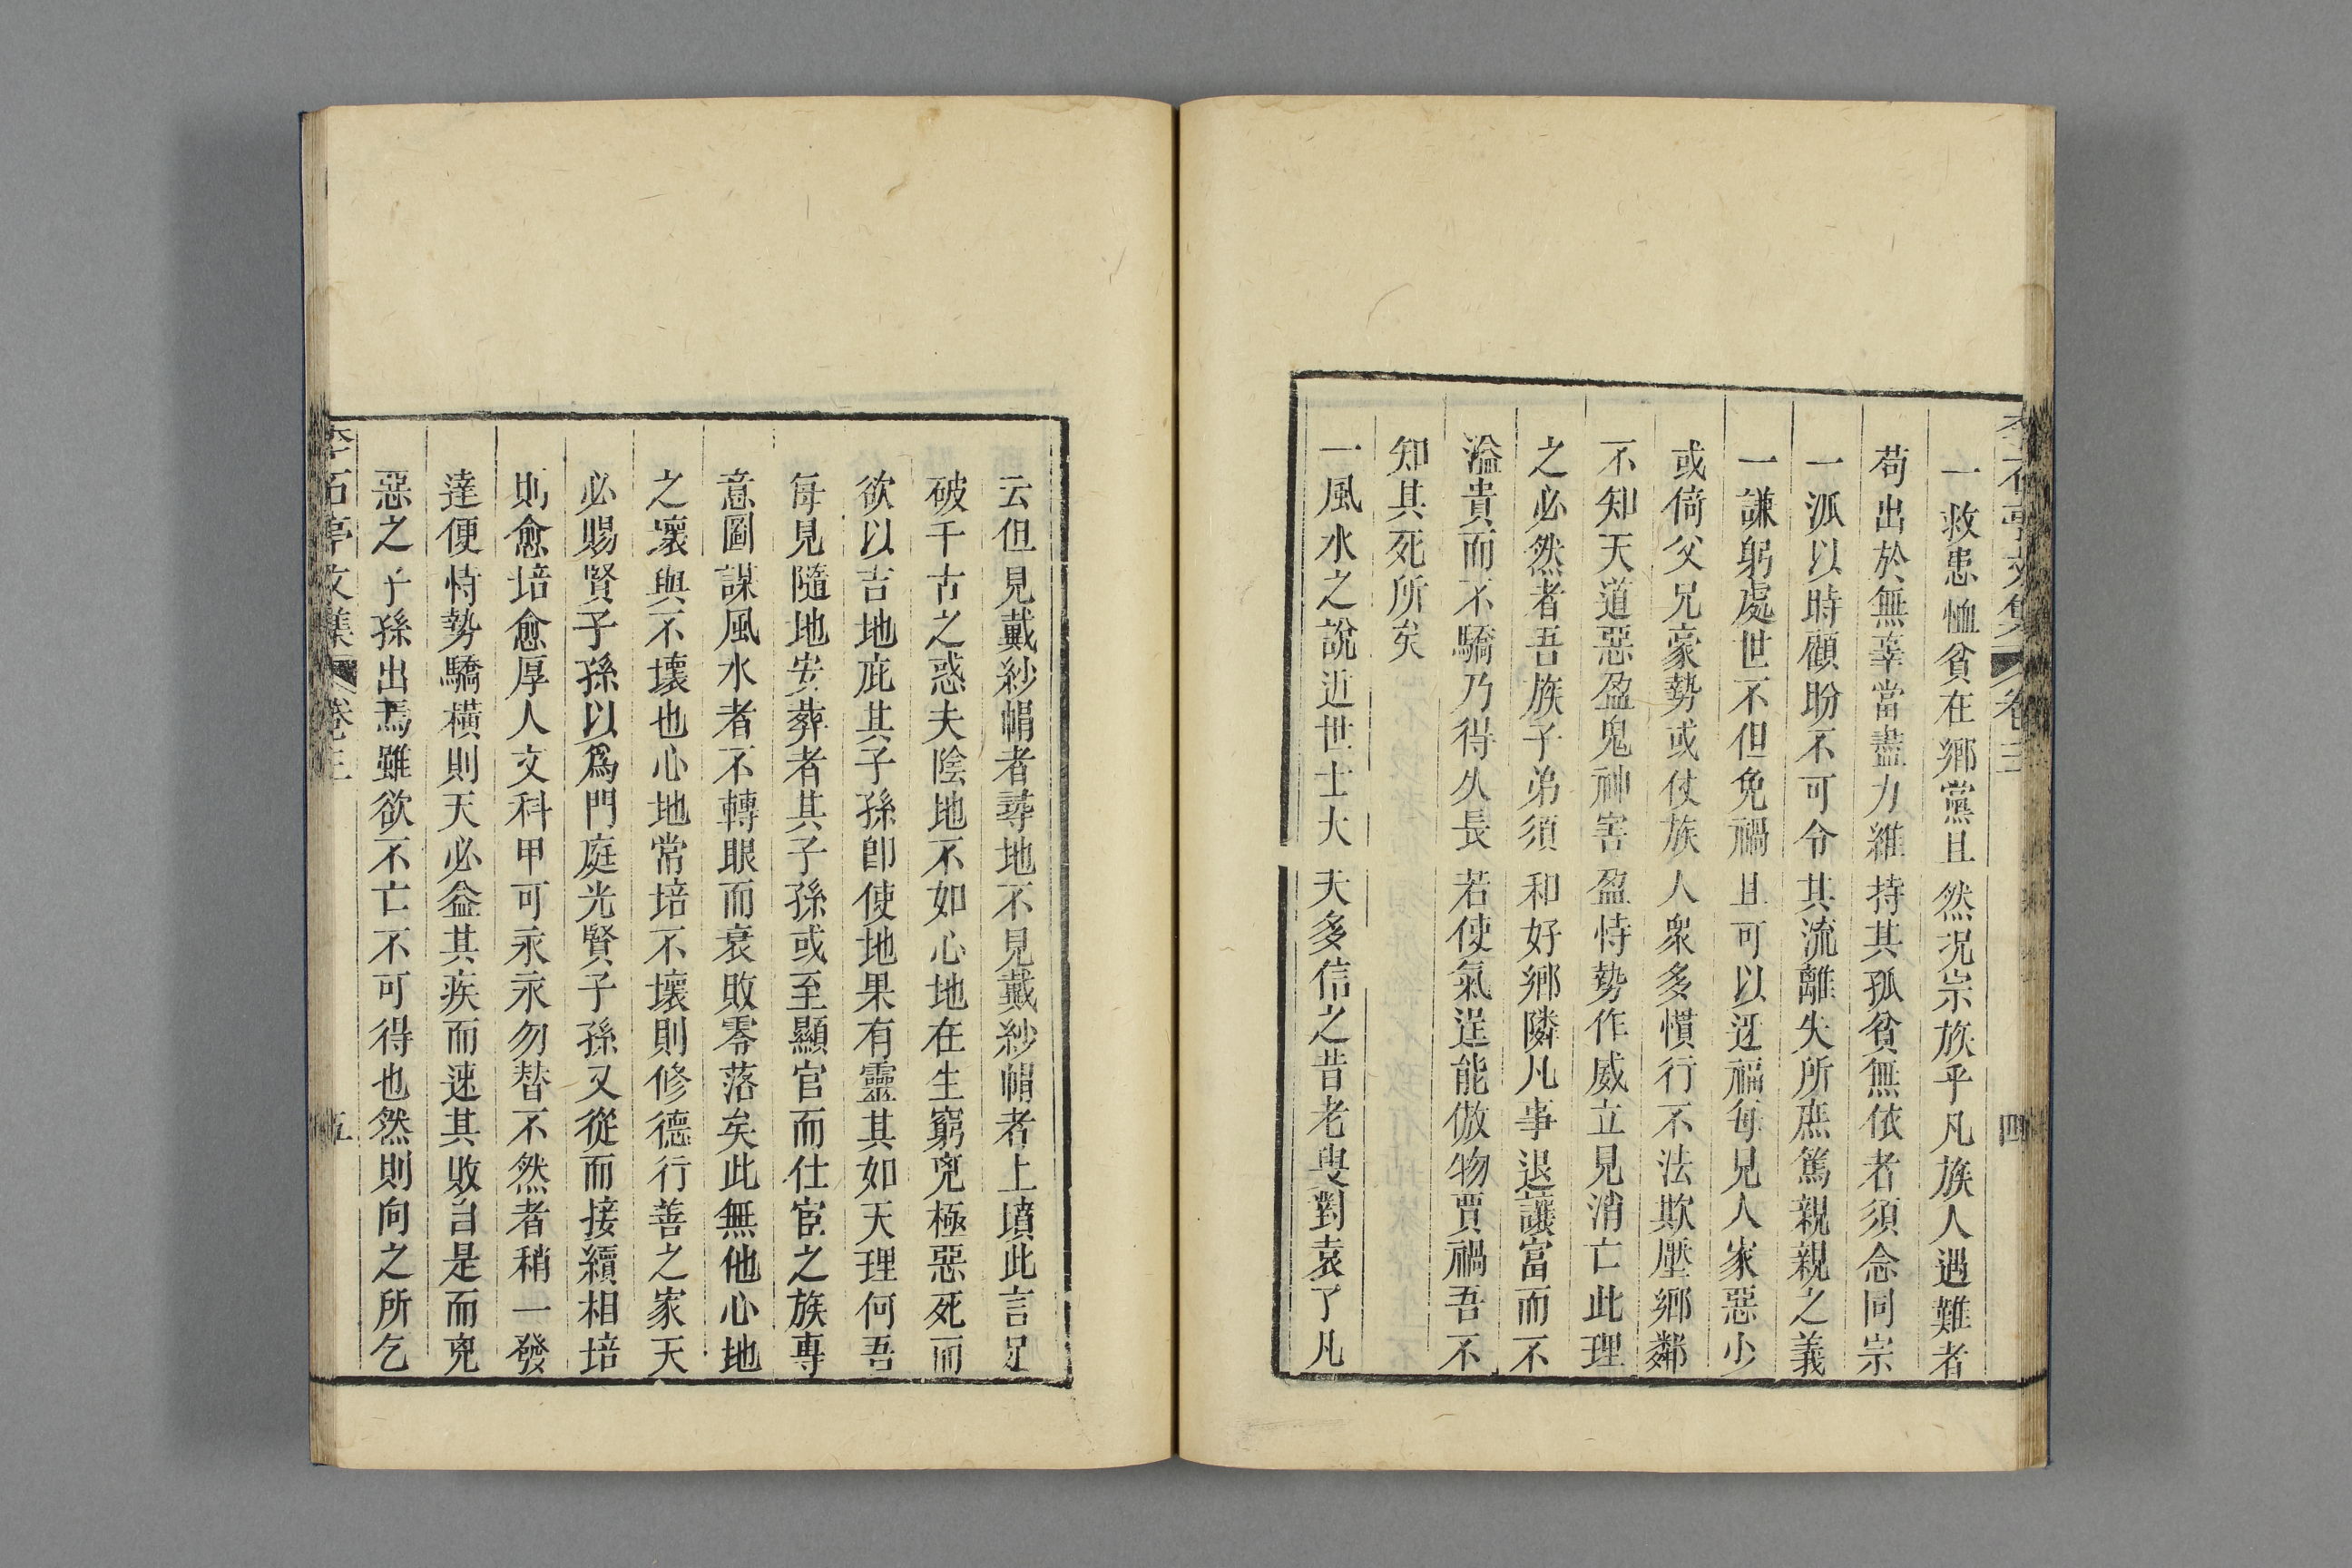 李石亭文集 卷三 四
一救患恤貧在鄉黨且然況宗族乎凡族人遇難者
苟出於無辜當盡力維持其孤貧無依者須念同宗
一派以時顧盼不可令其流離失所庶篤親親之義
一謙躬處世不但免禍且可以迓福每見人家惡少
或倚父兄豪勢或仗族人衆多慣行不法欺壓鄉鄰
不知天道惡盈鬼神害盈恃勢作威立見消亡此理
之必然者吾族子弟須和好鄉隣凡事退讓富而不
溢貴而不驕乃得久長若使氣逞能倣物賈禍吾不
知其死所矣
一風水之說近世士大夫多信之昔老叟對袁了凡
云但見戴紗帽者尋地不見戴紗帽者上墳此言足
破千古之惑夫陰地不如心地在生窮兇極惡死而
欲以吉地庇其子孫卽使地果有靈其如天理何吾
每見隨地安葬者其子孫或至顯官而仕宦之族專
意圖謀風水者不轉眼而衰敗零落矣此無他心地
之壞與不壞也心地常培不壞則修德行善之家天
必賜賢子孫以爲門庭光賢子孫又從而接續相培
則愈培愈厚人文科甲可永永勿替不然者稍一發
達便恃勢驕橫則天必益其疾而速其敗自是而兇
惡之子孫出焉雖欲不亡不可得也然則向之所乞
李石亭文集 卷三 五